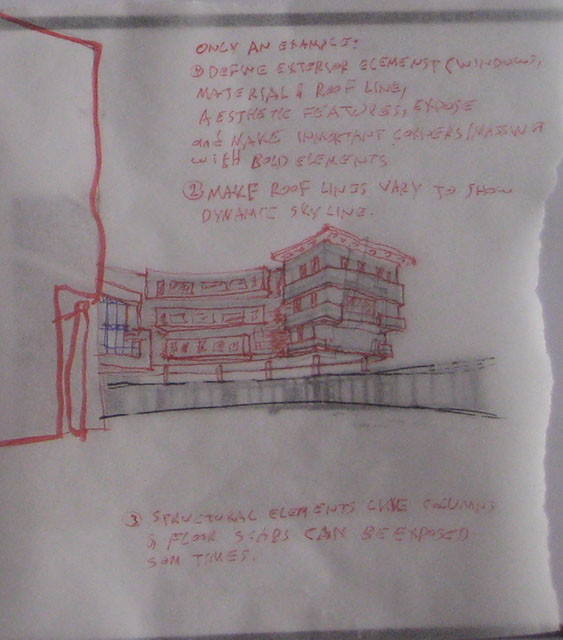 ONLY AN EXAMPLE:
① DEFINE EXTERIOR ELEMENST (WINDOWS,
MATERIAL & ROOF LINE,
AESTHETIC FEATURES, EXPOSE
and MAKE IMMORTANT CORNERS/MASSING
with BOLD ELEMENTS
② MAKE ROOF LINES VARY TO SHOW
DYNAMIC SKYLINE.
③ STRUCTURAL ELEMENTS LIKE COLUMNS
& FLOOR SLABS CAN BE EXPOSED
SOM TIMES.